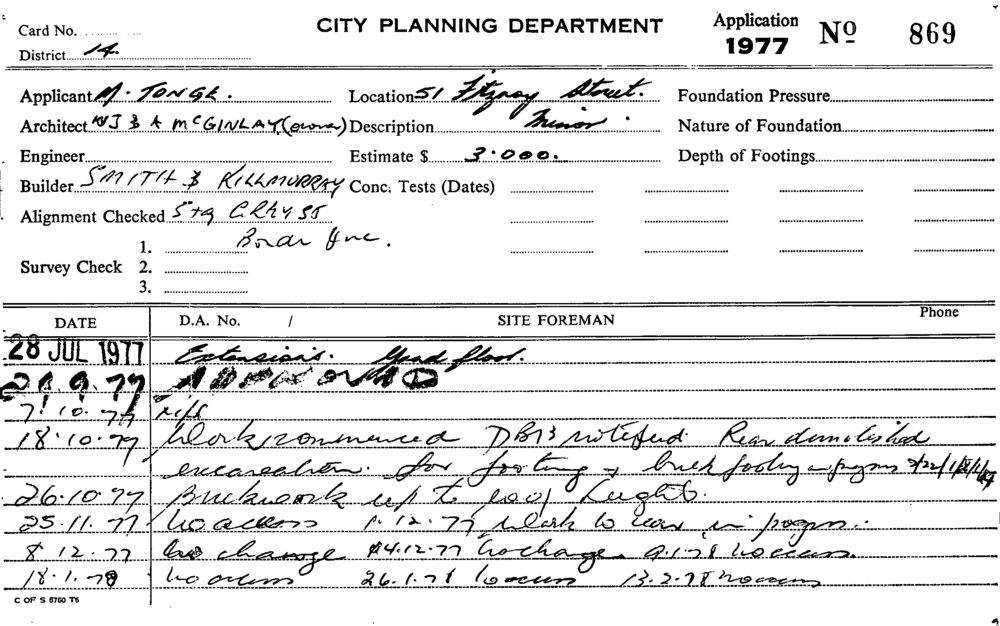 Card No. CITY PLANNING DEPARTMENT Application Nº 869
District 14. 1977
Applicant M. TONGE. Location 51 Fitzroy Street. Foundation Pressure
Architect WJ & A McGINLAY (owner) Description Minor. Nature of Foundation
Engineer Estimate $ 3.000. Depth of Footings
Builder SMITH & KILLMURRAY Conc. Tests (Dates)
Alignment Checked
1.
Survey Check 2.
3.
DATE D.A. No. / SITE FOREMAN Phone
28 JUL 1977 Extensions. Grnd floor.
9.77 APPROVED
7.10.77
18.10.77 Work commenced notified Rear demolished
excavation for footing & brick footing
26.10.77 Brickwork up to roof height.
25.11.77 No access 1.12.77 Work to rear in progss.
8.12.77 No change 14.12.77 No change 9.1.78 No access.
18.1.78 No access 26.1.78 No access 13.2.78 No access
C OF S 6760 T6